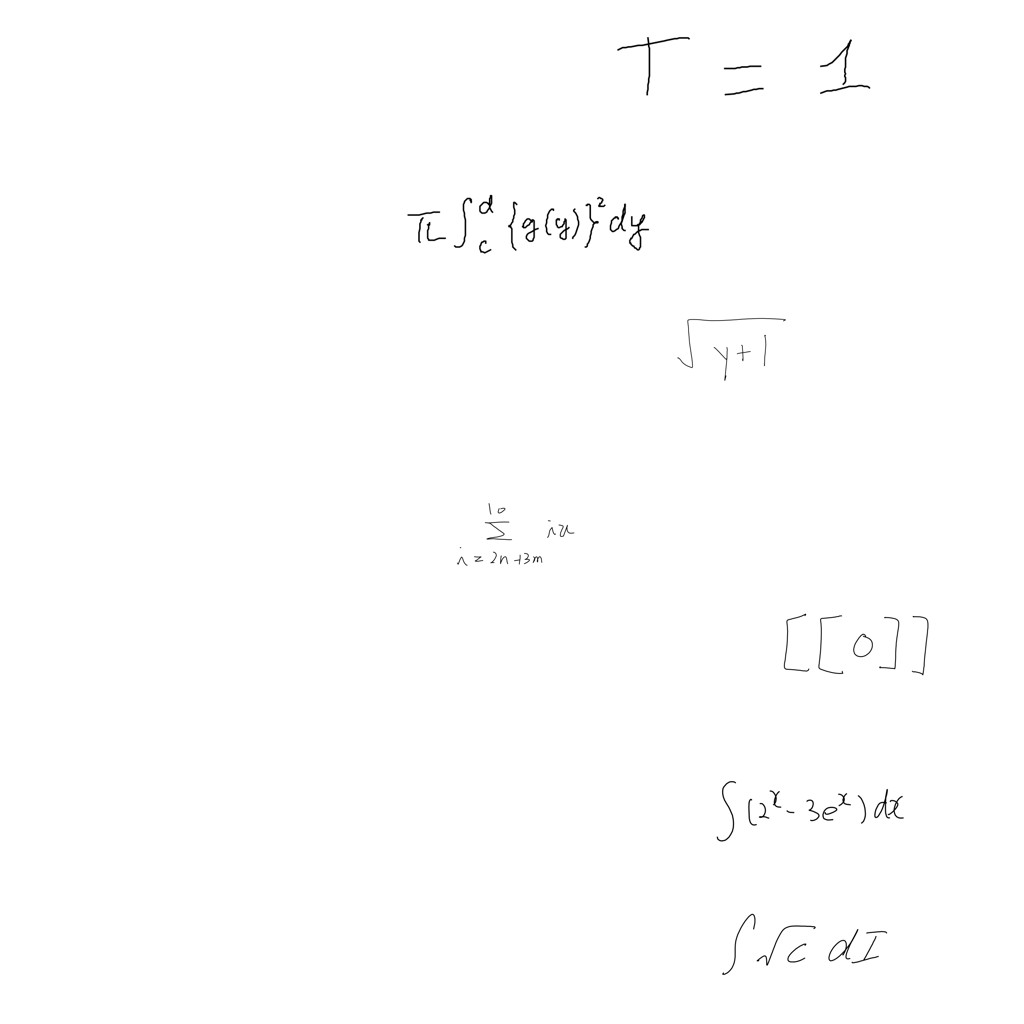 T = 1
π∫_c^d {g(y)}^2 dy
√(y+1)
∑_{i=2n+3m}^{10} ix
[[0]]
∫(2^x - 3e^x)dx
∫√c dI